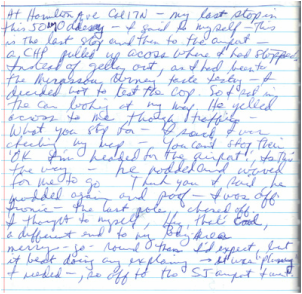 At Hamilton Ave Cal 17N - my last stop in
this 50 m Odyssey - I said to myself - This
is the last stop and then to the airport -
a CHP pulled up across where I had stopped
Instead of getting out, as I had been to
the
decided not to test the cop. So I sat in
the car looking at my map. He yelled
across to me though traffic -
What you stop for - I said I was
checking my map - You can't stop there
OK I'm headed for the airport, is this
the way - he nodded and waved
for me to go Thank you I said he
nodded again and poof - I was off
the last pole, I cheered off
I thought to myself, Hey, that's cool,
a different end to my
merry-go-round than I'd expect, but
it beat doing any explaining -
I needed -, so off to the SJ airport I went